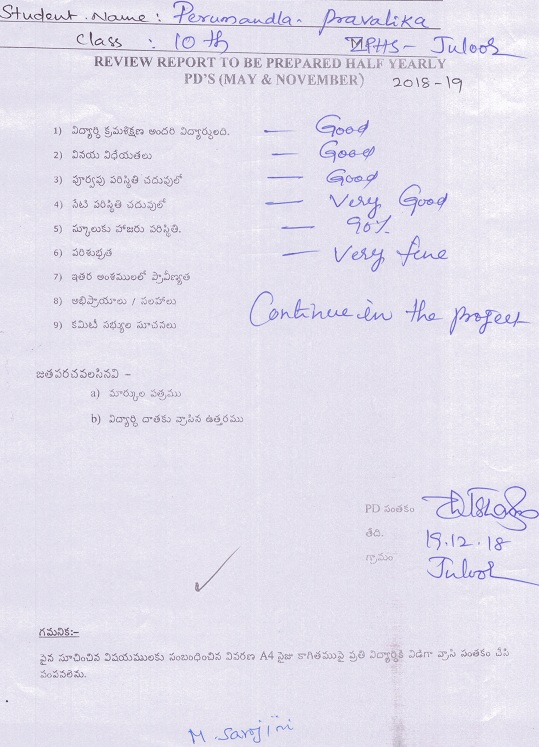 Student Name : Perumandla. Pravalika
Class : 10 th ZPHS - Juloor
REVIEW REPORT TO BE PREPARED HALF YEARLY
PD'S (MAY & NOVEMBER) 2018-19
1) విద్యార్థి క్రమశిక్షణ అందరి విద్యార్థులది. — Good
2) వినయ విధేయతలు — Good
3) పూర్వపు పరిస్థితి చదువులో — Good
4) నేటి పరిస్థితి చదువులో — Very Good
5) స్కూలుకు హాజరు పరిస్థితి. — 90%
6) పరిశుభ్రత — Very fine
7) ఇతర అంశములలో ప్రావీణ్యత
8) అభిప్రాయాలు / సలహాలు Continue in the project
9) కమిటీ సభ్యుల సూచనలు
జతపరచవలసినవి -
a) మార్కుల పత్రము
b) విద్యార్థి దాతకు వ్రాసిన ఉత్తరము
PD సంతకం
తేది. 19.12.18
గ్రామం Juloor
గమనిక:-
పైన సూచించిన విషయములకు సంబంధించిన వివరణ A4 సైజు కాగితముపై ప్రతి విద్యార్థికి విడిగా వ్రాసి సంతకం చేసి
పంపవలెను.
M. Sarojini